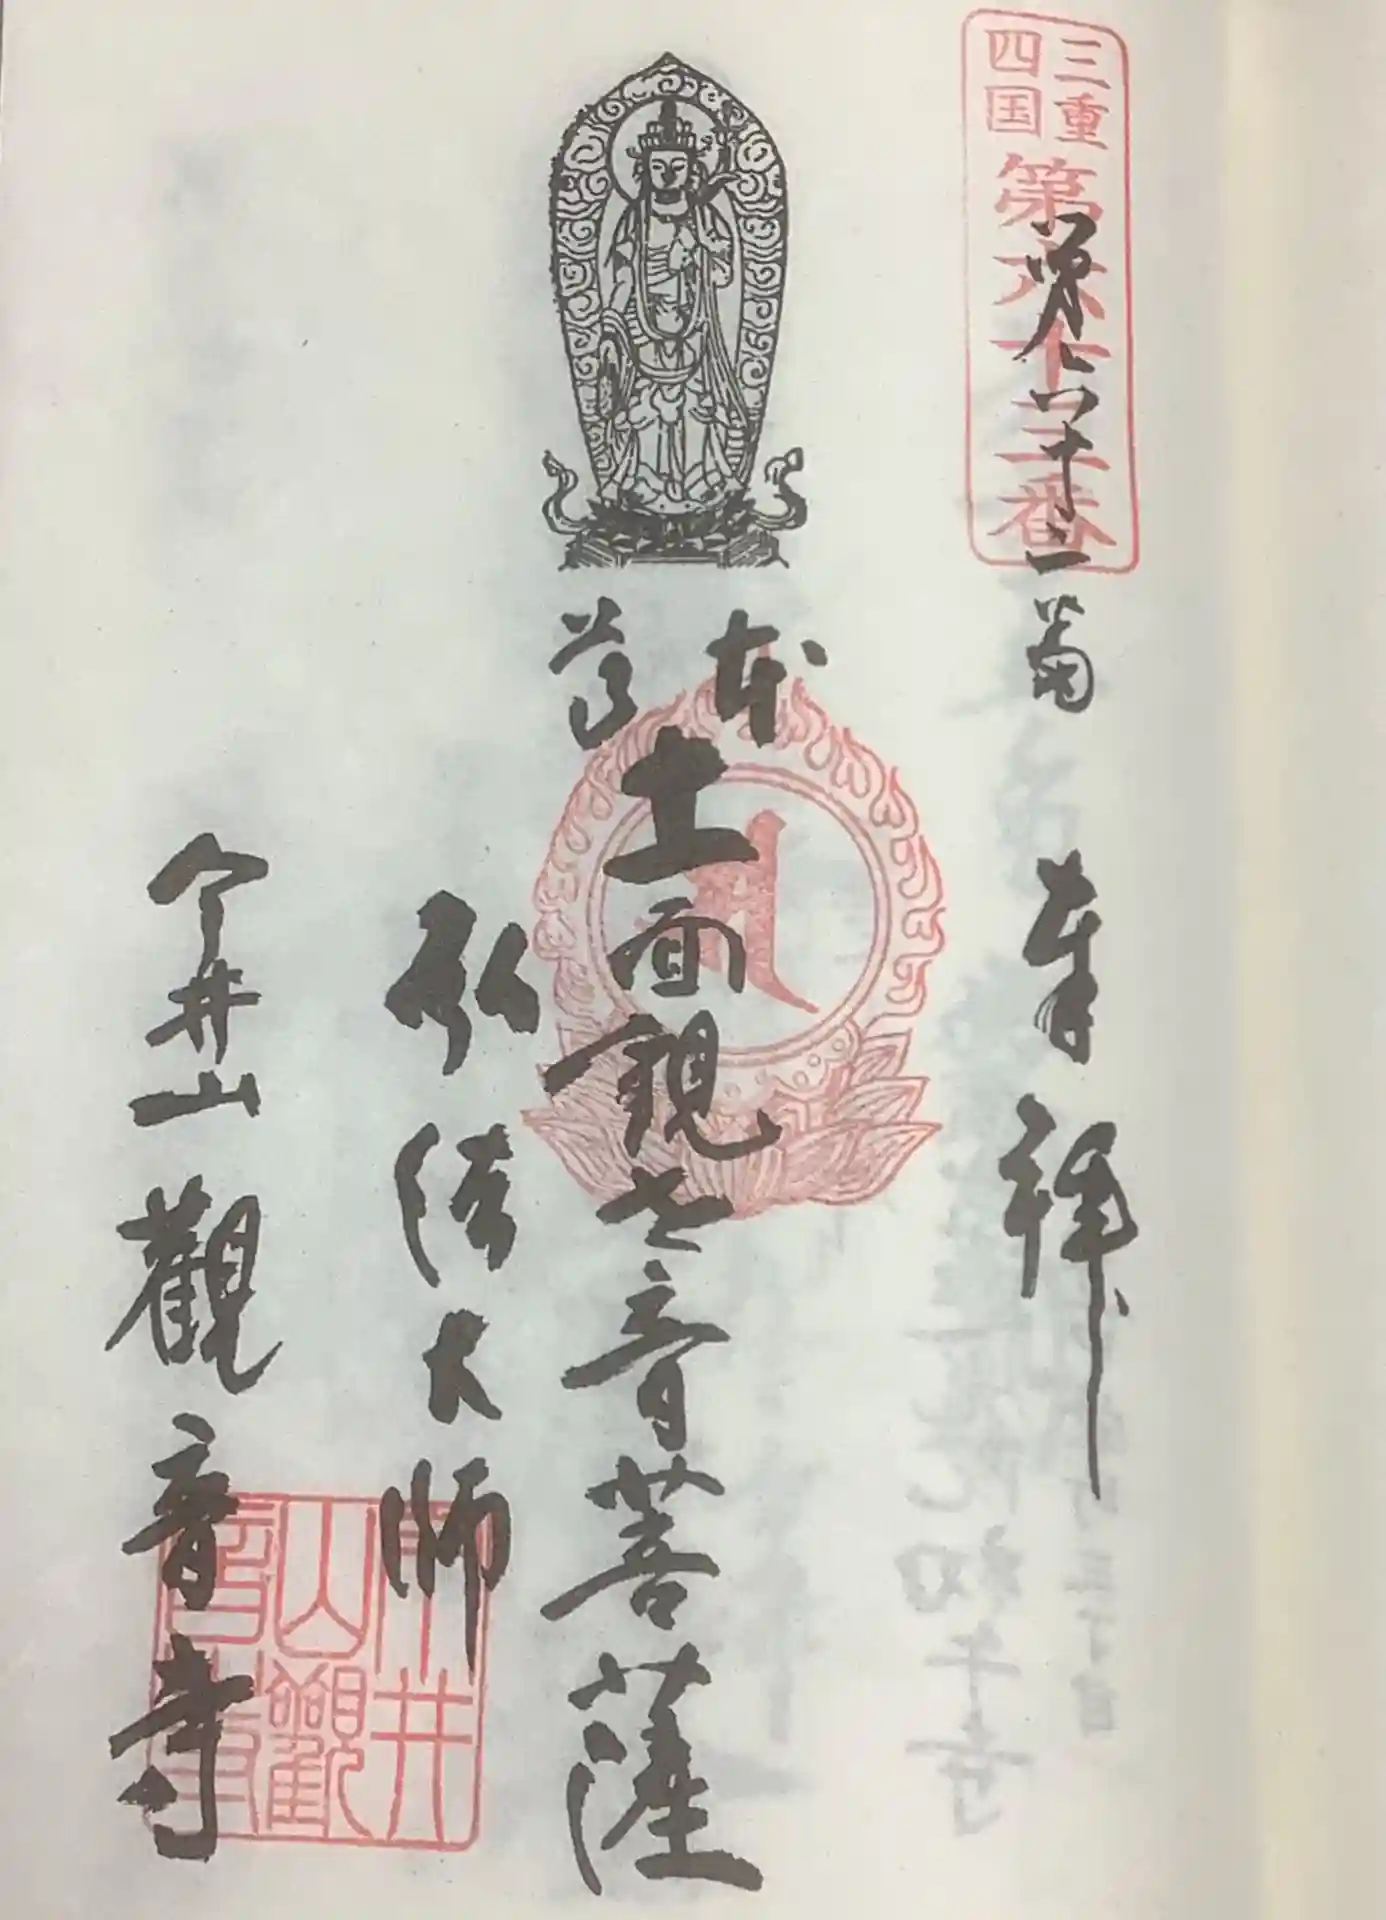 三重
四国
第六十三番
奉拝
本尊
十一面観世音菩薩
弘法大師
今井山觀音寺
今井
山觀
音寺